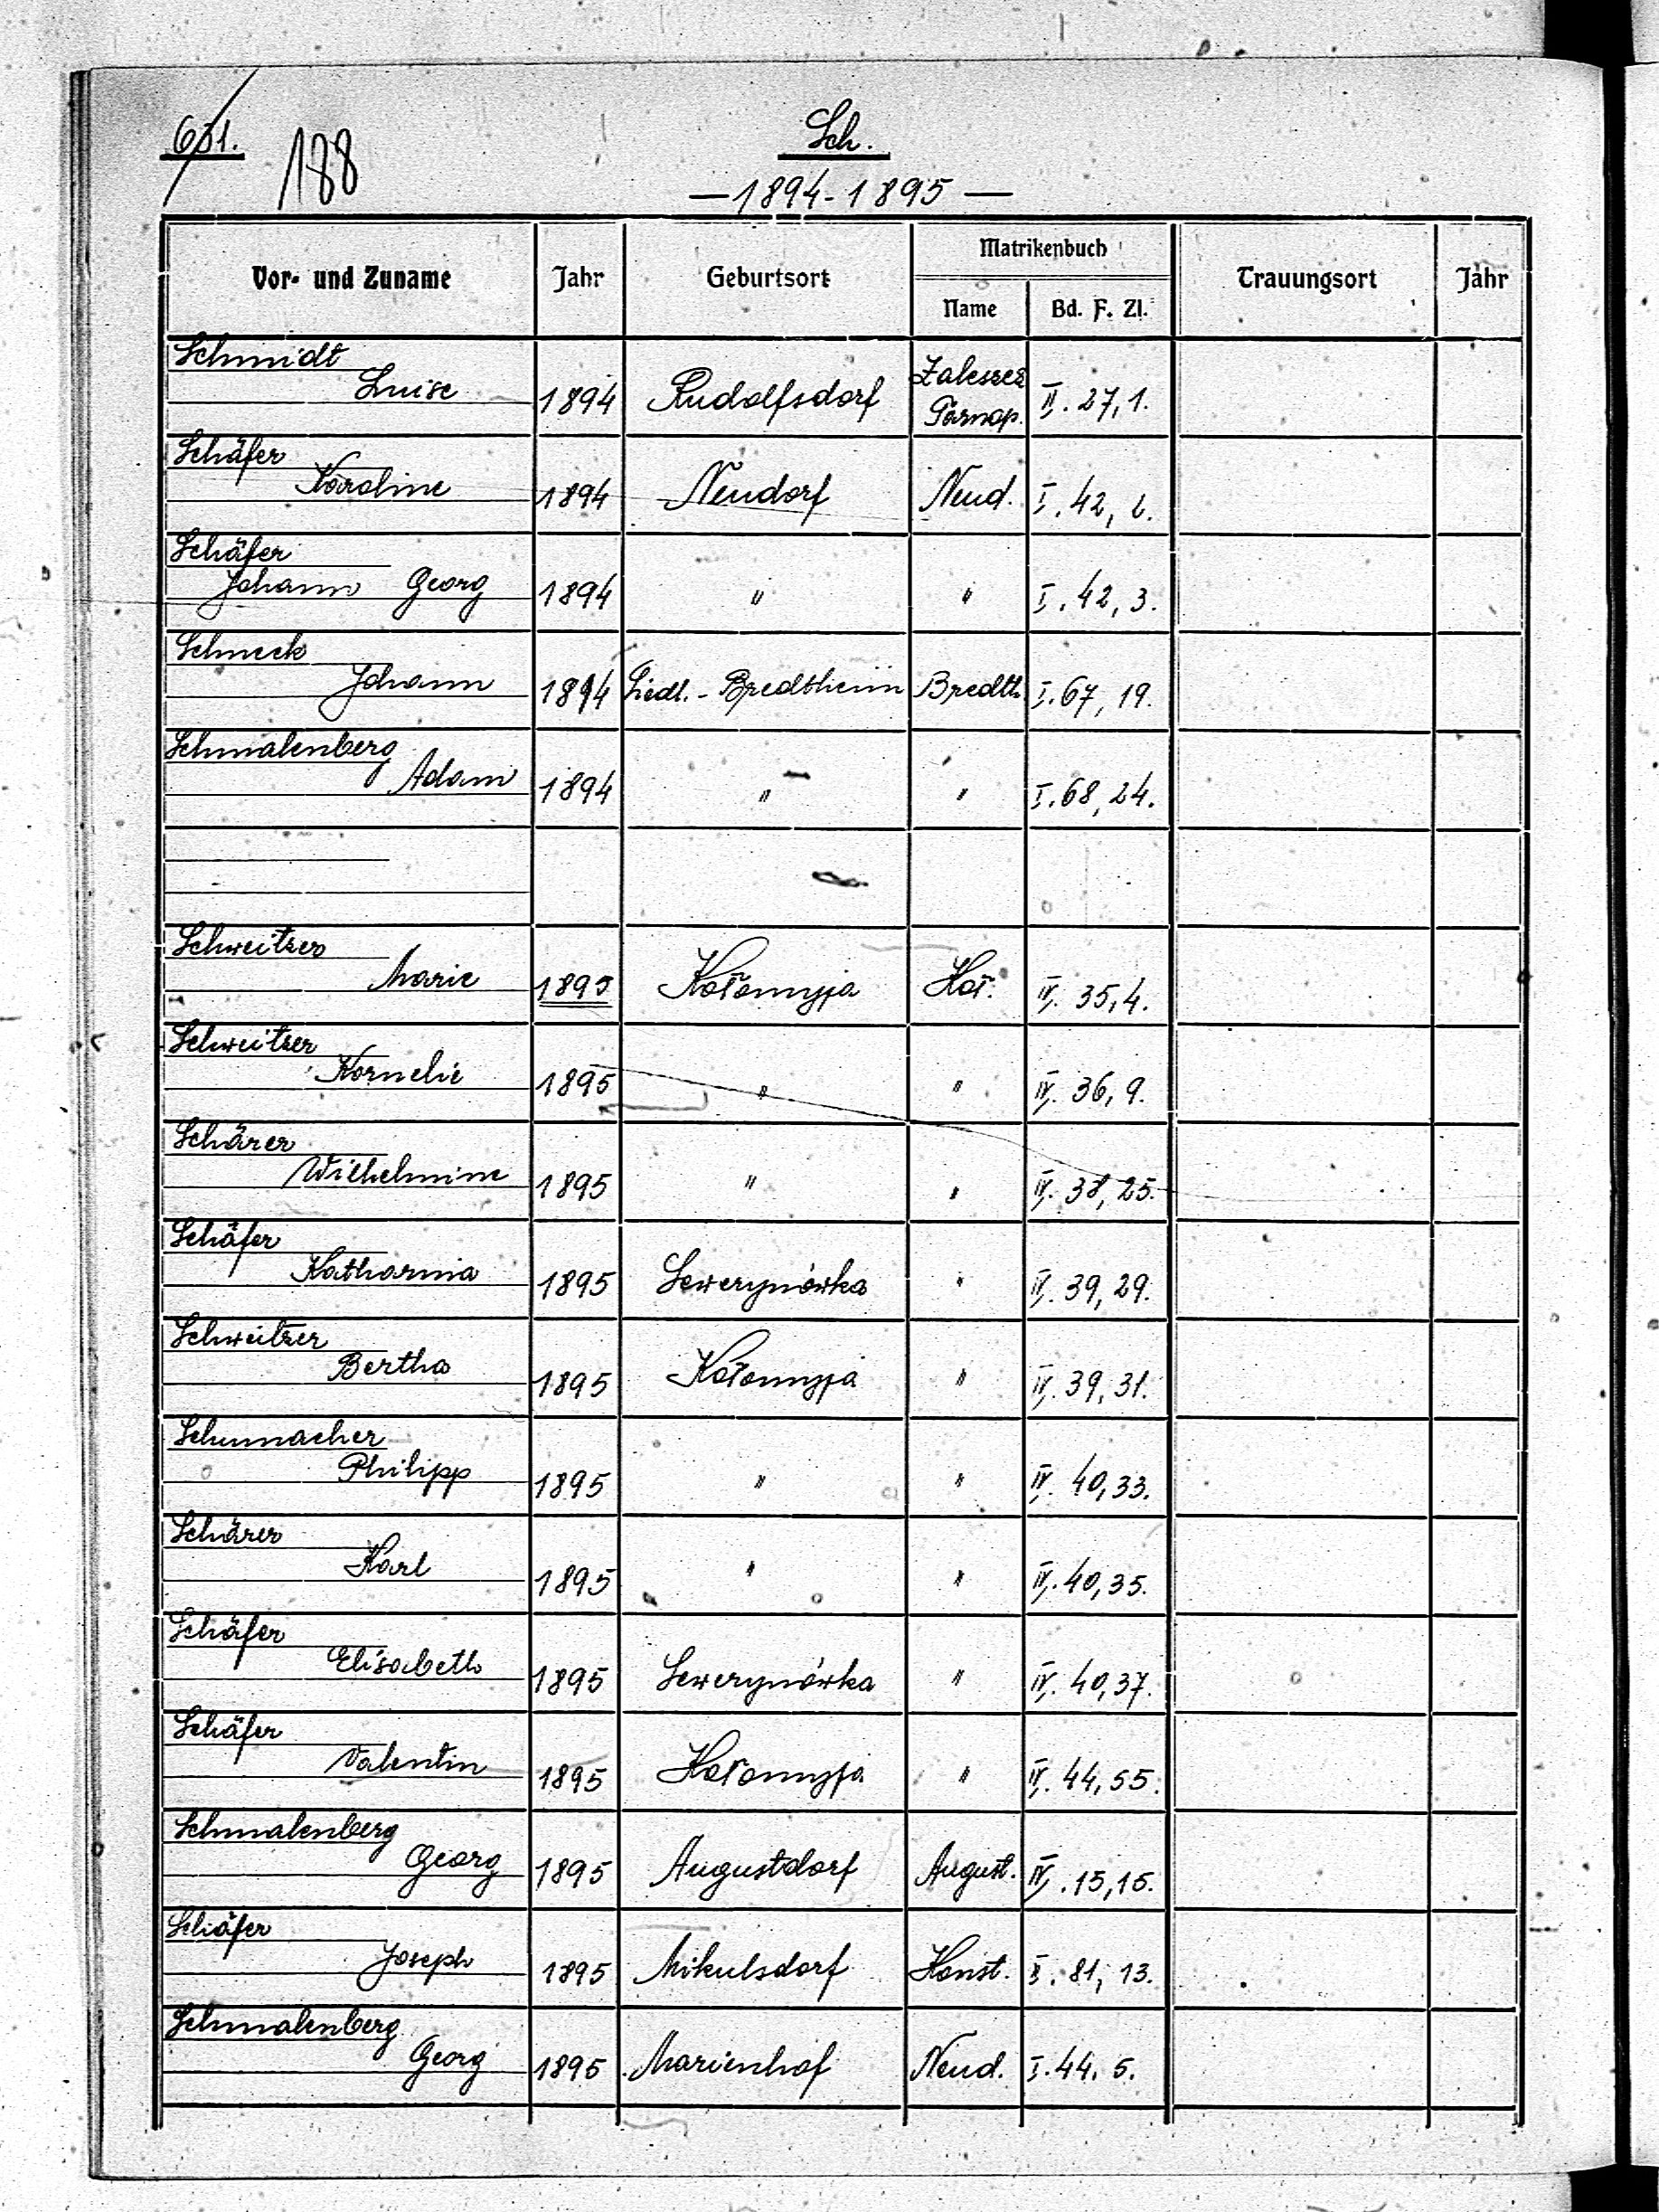 651.
188
Sch.
— 1894-1895 —
Vor- und Zuname Jahr Geburtsort Matrikenbuch Trauungsort Jahr
Name Bd. F. Zl.
Schmidt
Luise 1894 Rudolfsdorf Zaleszcz. Tarnop. II. 27, 1.
Schäfer
Karoline 1894 Neudorf Neud. I. 42, 2.
Schäfer
Johann Georg 1894 " " I. 42, 3.
Schneck
Johann 1894 Siedl.-Bredtheim Bredth. I. 67, 19.
Schmalenberg
Adam 1894 " " I. 68, 24.
Schweitzer
Marie 1895 Kołomyja Koł. IV. 35, 4.
Schweitzer
Kornelie 1895 " " IV. 36, 9.
Schärer
Wilhelmine 1895 " " IV. 38, 25.
Schäfer
Katharina 1895 Sewerynówka " IV. 39, 29.
Schweitzer
Bertha 1895 Kołomyja " IV. 39, 31.
Schumacher
Philipp 1895 " " IV. 40, 33.
Schärer
Karl 1895 " " IV. 40, 35.
Schäfer
Elisabeth 1895 Sewerynówka " IV. 40, 37.
Schäfer
Valentin 1895 Kołomyja " IV. 44, 55.
Schmalenberg
Georg 1895 Augustdorf August. IV. 15, 15.
Schäfer
Joseph 1895 Mikulsdorf Konst. II. 81, 13.
Schmalenberg
Georg 1895 Marienhof Neud. I. 44. 5.